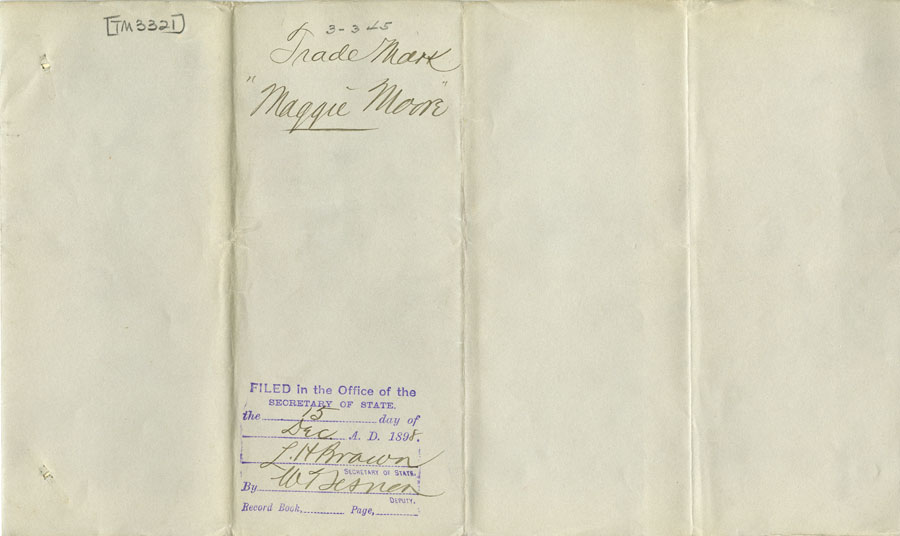 [TM3321]
3-3 45
Trade Mark
"Maggie Moore"
FILED in the Office of the
SECRETARY OF STATE.
the 15 day of
Dec. A. D. 1898.
L. H Brown
SECRETARY OF STATE.
By W
DEPUTY.
Record Book, Page,